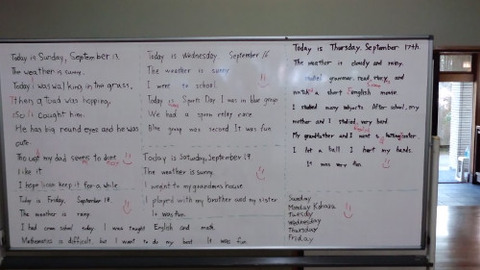 Today is Sunday, September 13.
The weather is sunny.
Today I was walking in the grass,
Then a toad was hopping,
So I caught him.
He has big round eyes and he was
cute.
my dad seems to
like it
I hope I can keep it for a while.
Today is Friday, September 18.
The weather is rainy.
I had cram school today. I was taught English and math.
Mathematics is difficult, but I want to do my best. It was fun.
Today is Wednesday, September 16
The weather is sunny
I went to school.
Today Sports Day I was in blue group
We had a spoon relay race
Blue group was second It was fun.
Today is Saturday, September 19.
The weather is sunny.
I went to my grandma's house.
I played with my brother and my sister
It was fun.
Today is Thursday, September 17th.
The weather is cloudy and rainy.
I studied grammar, read, story, and
a short English movie.
I studied many subjects. After school, my
mother and I studied very hard
My grandfather and I went a center
I let a ball I hurt my hands.
It was very fun
Sunday
Monday
Tuesday
Wednesday
Thursday
Friday